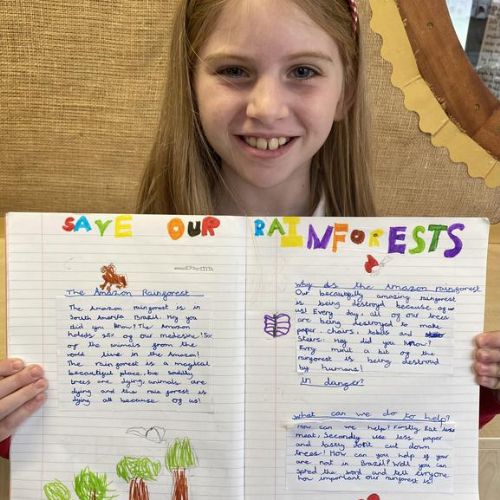 SAVE OUR RAINFORESTS
The Amazon Rainforest
The Amazon rainforest is in
South America Brazil. Hey you
did you know? The Amazon
holds of our medecine!
of the animals from the
world live in the Amazon!
The rainforest is a magical
beautiful place, but sadily
trees are dying, animals are
dying and the rainforest is
dying all because of us!
Why is the Amazon rainforest
Our beautifully amazing rainforest
is being destroyed because of
us! Every day, all of our trees
are being destroyed to make
paper, chairs, tables and
stairs. Hey did you know?
Every minit a bit of the
rainforest is being destroyed
by humans!
in danger?
What can we do to help?
How can we help? Firstly Eat less
meat, Secondly use less paper
and lastly don't cut down
trees! How can you help if you
are not in Brazil? Well you can
spred the word and tell everyone
how important our rainforest is!